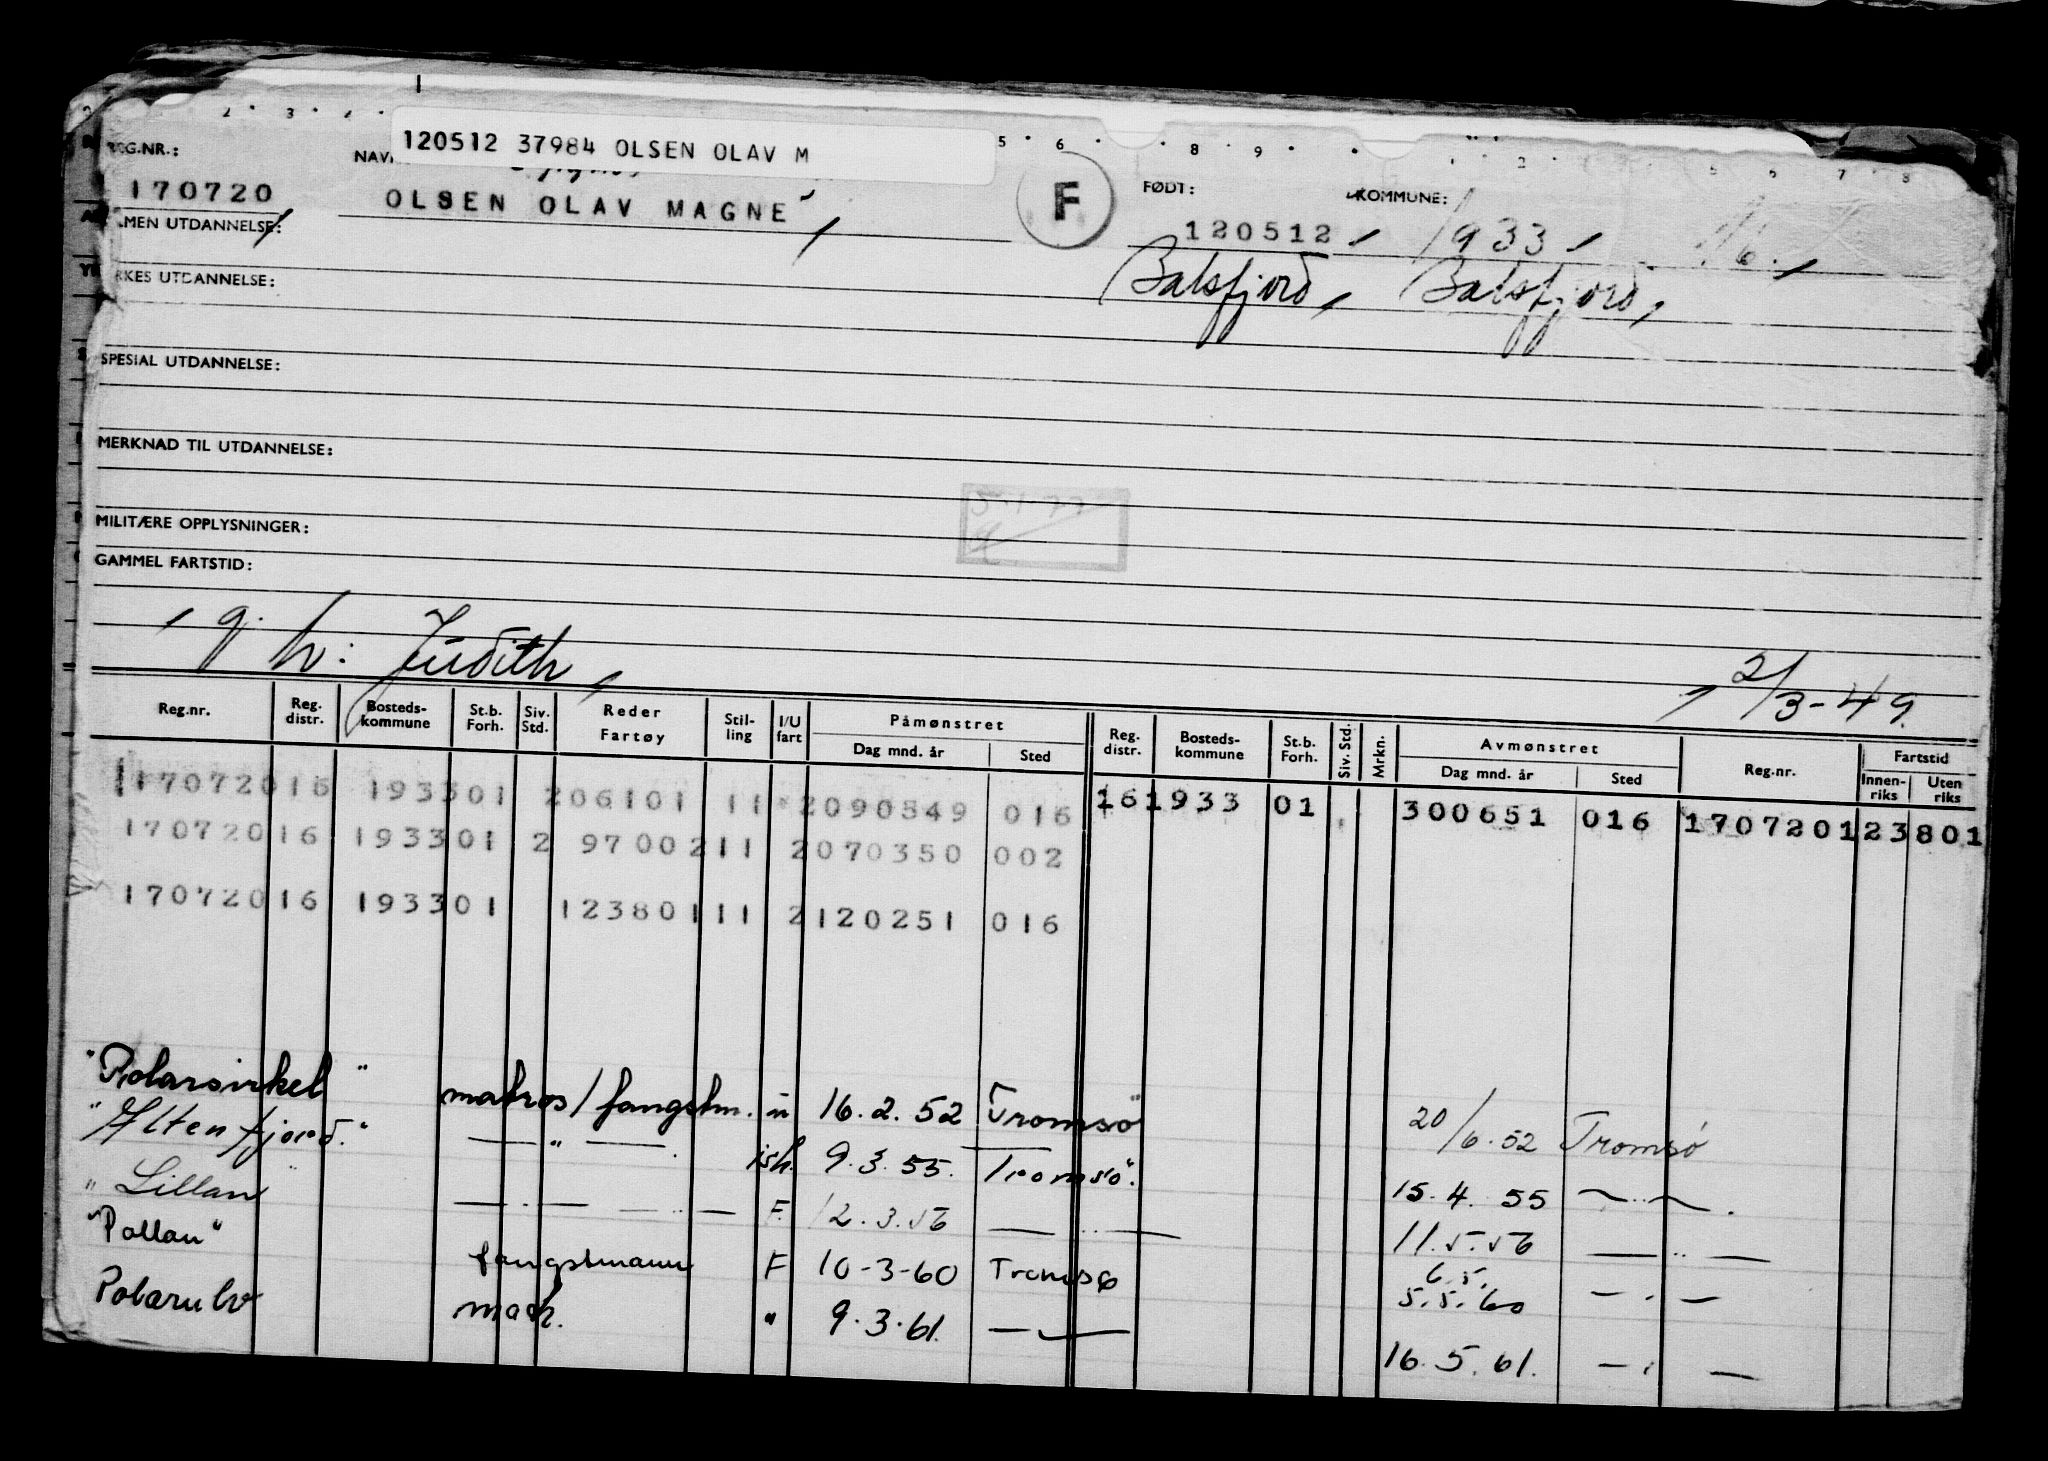 120512 37984 OLSEN OLAV M
REG.NR.: NAV FØDT: KOMMUNE:
170720 OLSEN OLAV MAGNE F 120512 1933 16.
ALMEN UTDANNELSE: Balsfjord, Balsfjord,
YRKES UTDANNELSE:
SPESIAL UTDANNELSE:
MERKNAD TIL UTDANNELSE:
5.1.77
MILITÆRE OPPLYSNINGER:
GAMMEL FARTSTID:
g. h: Judith, 2/3-49.
Reg.nr. Reg. distr. Bosteds-kommune St.b. Forh. Siv. Std. Reder Fartøy Stil-ling I/U fart Påmønstret Dag mnd. år Sted Reg. distr. Bosteds-kommune St.b. Forh. Siv. Std. Mrkn. Avmønstret Dag mnd. år Sted Reg.nr. Fartstid Innen-riks Uten riks
170720 16 1933 01 206101 11 2 090549 016 16 1933 01 300651 016 170720 123801
170720 16 1933 01 2 97002 11 2 070350 002
170720 16 1933 01 123801 11 2 120251 016
"Polarsirkel" matros/fangstm. u 16.2.52 Tromsø 20/6.52 Tromsø
"Altenfjord." — " — ish. 9.3.55. Tromsø. 15.4.55 — " — .
"Lillan" — " — — " — F. 12.3.56 — " — 11.5.56 — " —
"Pollan" fangstmann F 10-3-60 Tromsø 6.5. 5.5.60 — " —
Polarulv mask. " 9.3.61. — " — 16.5.61. — " —